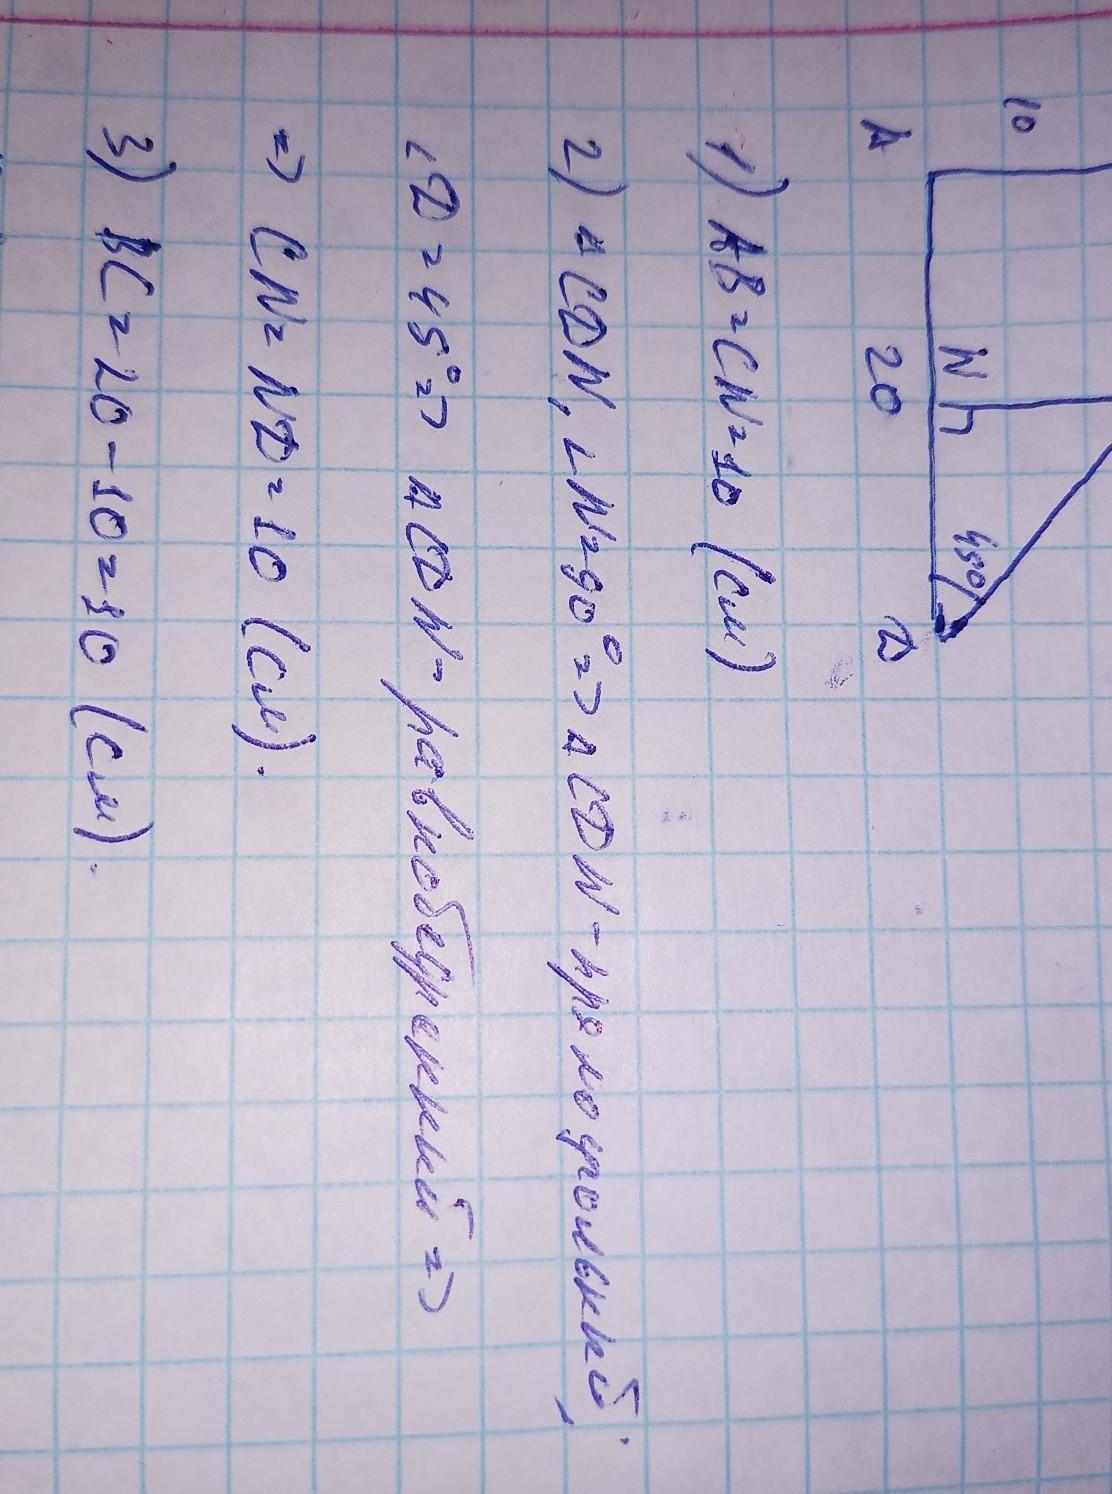 10
N
45°
A
20
D
1) AB=CN=10 (см)
2) △CDN, ∠N=90° => △CDN - прямоугольный,
∠D=45° => △CDN - равнобедренный =>
=> CN=ND=10 (см).
3) BC=20-10=10 (см).